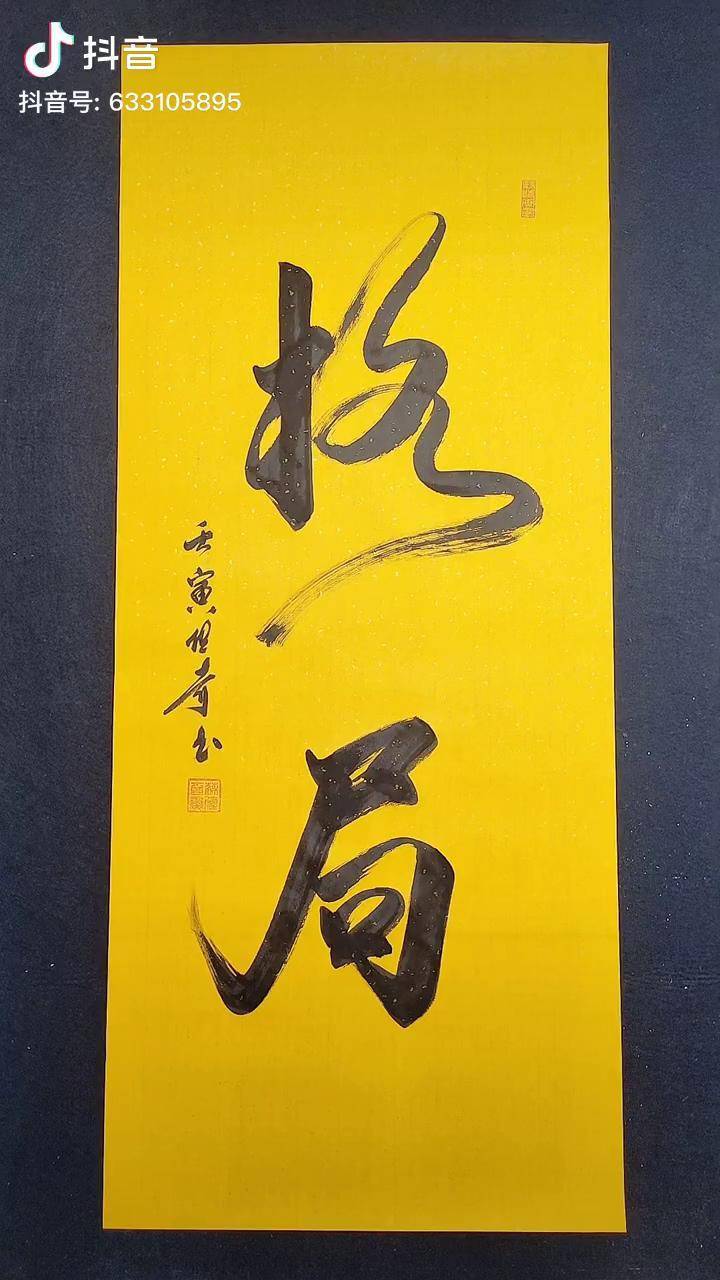 抖音
抖音号: 633105895
格局
壬寅
书